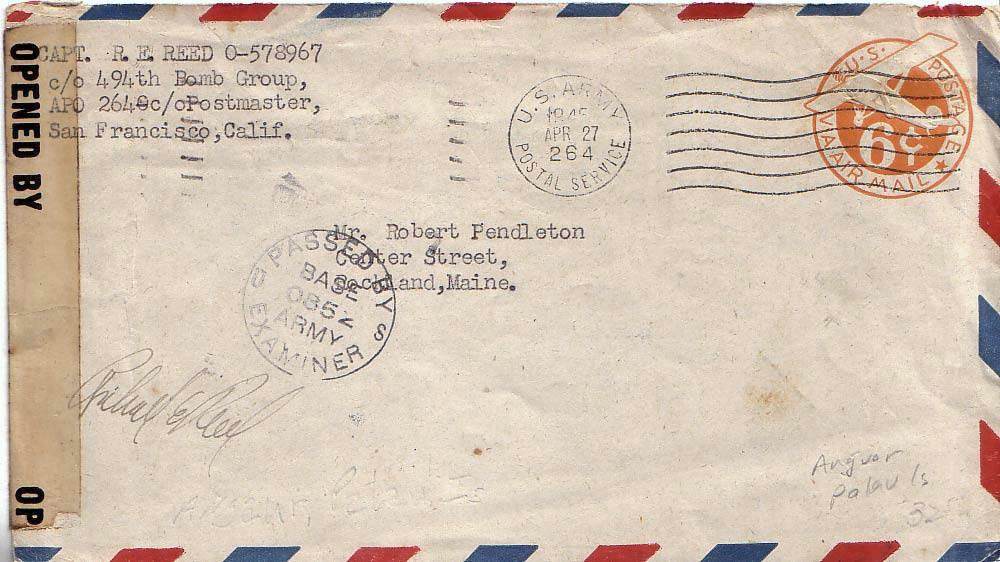 CAPT. R. E. REED O-578967
c/o 494th Bomb Group,
APO 264 c/oPostmaster,
San Francisco,Calif.
OPENED BY
OP
U.S. ARMY
1945
APR 27
264
POSTAL SERVICE
U.S. POSTAGE
6¢
VIA AIR MAIL
Mr. Robert Pendleton
Center Street,
Rockland,Maine.
PASSED BY
BASE
0852
ARMY
EXAMINER
U S
Richard E Reed
Angaur, Palau Is
Anguar
Palau Is
32